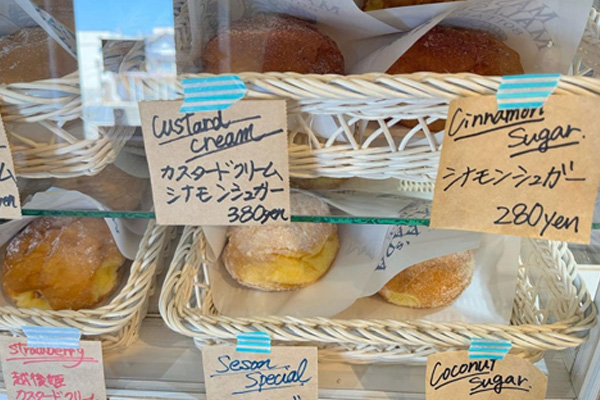 Custard
cream
カスタードクリーム
シナモンシュガー
380yen
Cinnamon
Sugar.
シナモンシュガー
280yen
ム
strawberry
越後姫
カスタードクリーム
Seson
Special
Coconut
Sugar.